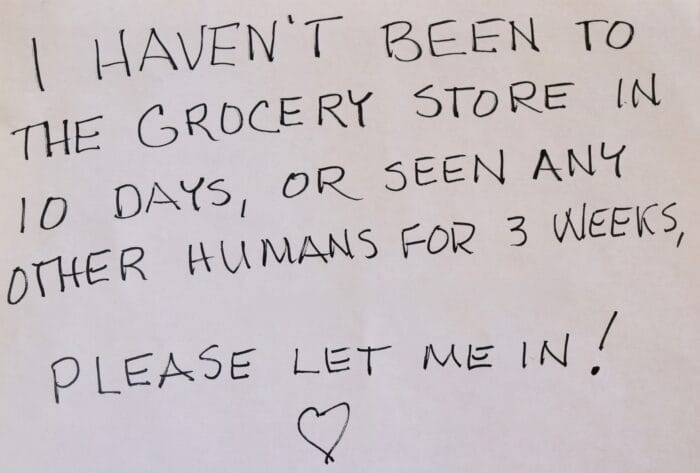 I HAVEN'T BEEN TO
THE GROCERY STORE IN
10 DAYS, OR SEEN ANY
OTHER HUMANS FOR 3 WEEKS,
PLEASE LET ME IN!
♡